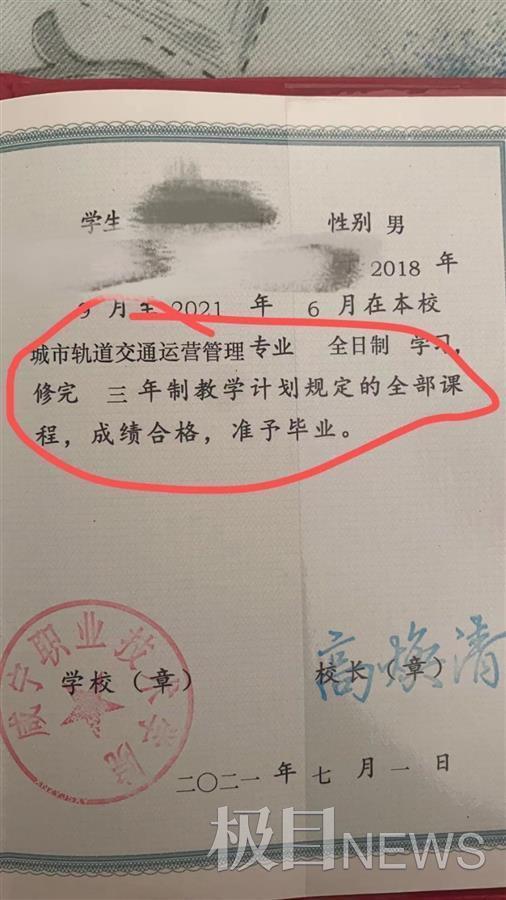 学生 性别 男
2018 年
9 月至 2021 年 6 月在本校
城市轨道交通运营管理 专业 全日制 学习,
修完 三年制教学计划规定的全部课
程，成绩合格，准予毕业。
咸宁职业技术学院
学校（章） 校长（章）
高焕清
二〇二一年七月一日
极目NEWS